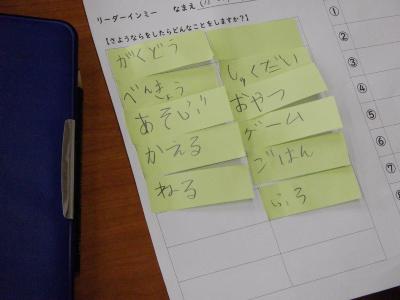 リーダーインミー なまえ
【さようならをしたらどんなことをしますか?】
がくどう
べんきょう
しゅくだい
あそび
おやつ
かえる
ゲーム
ねる
ごはん
ふろ
①
②
③
④
⑤
⑥
⑦